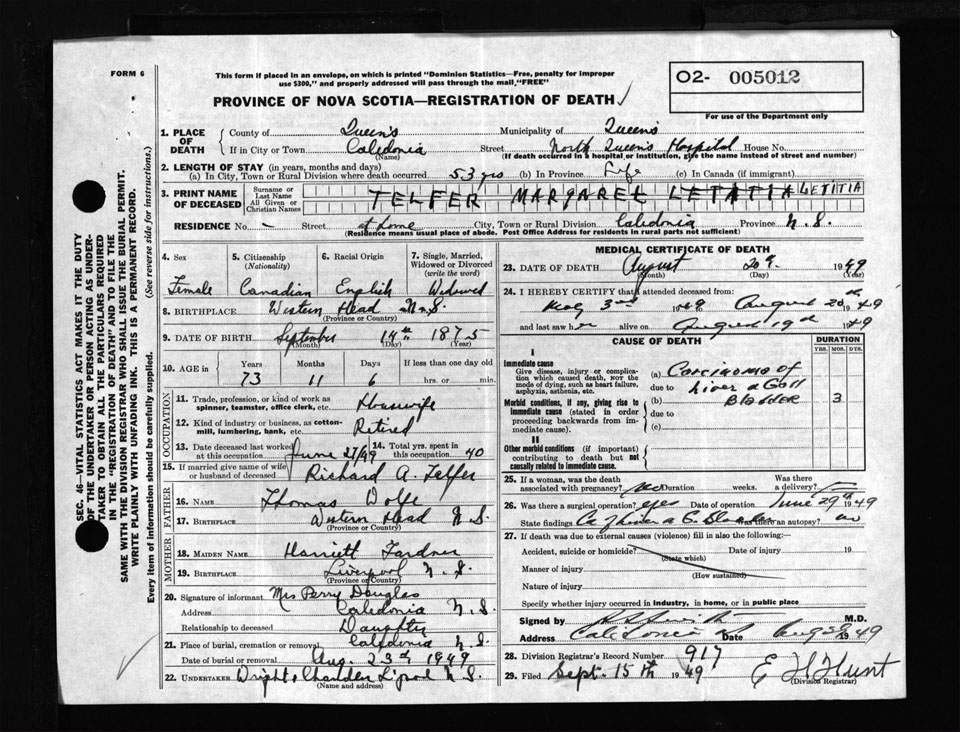 FORM 6
This form if placed in an envelope, on which is printed "Dominion Statistics—Free, penalty for improper
use $300," and properly addressed will pass through the mail, "FREE"
PROVINCE OF NOVA SCOTIA—REGISTRATION OF DEATH
O2- 005012
For use of the Department only
SEC. 46—VITAL STATISTICS ACT MAKES IT THE DUTY
OF THE UNDERTAKER OR PERSON ACTING AS UNDER-
TAKER TO OBTAIN ALL THE PARTICULARS REQUIRED
IN THE "REGISTRATION OF DEATH" AND TO FILE THE
SAME WITH THE DIVISION REGISTRAR WHO SHALL ISSUE THE BURIAL PERMIT.
WRITE PLAINLY WITH UNFADING INK. THIS IS A PERMANENT RECORD.
Every item of information should be carefully supplied. (See reverse side for instructions.)
1. PLACE OF DEATH County of Queen's Municipality of Queens
If in City or Town Caledonia Street North Queen's Hospital House No.
(Name) (If death occurred in a hospital or institution, give the name instead of street and number)
2. LENGTH OF STAY (in years, months and days)
(a) In City, Town or Rural Division where death occurred 53 yrs (b) In Province Life (c) In Canada (if immigrant)
3. PRINT NAME OF DECEASED Surname or Last Name All Given or Christian Names TELFER MARGARET LETATIA LETITIA
RESIDENCE No. - Street at Home City, Town or Rural Division Caledonia Province N.S.
(Residence means usual place of abode. Post Office Address for residents in rural parts not sufficient)
4. Sex 5. Citizenship (Nationality) 6. Racial Origin 7. Single, Married, Widowed or Divorced (write the word)
Female Canadian English Widowed
8. BIRTHPLACE Western Head N.S.
(Province or Country)
9. DATE OF BIRTH September 14th 1875
(Month) (Day) (Year)
10. AGE in Years Months Days If less than one day old
73 11 6 hrs. or min.
OCCUPATION
11. Trade, profession or kind of work as
spinner, teamster, office clerk, etc. Housewife
12. Kind of industry or business, as cotton-
mill, lumbering, bank, etc. Retired
13. Date deceased last worked at this occupation June 27/49 14. Total yrs. spent in this occupation 40
15. If married give name of wife
or husband of deceased Richard A. Telfer
FATHER
16. NAME Thomas Wolfe
17. BIRTHPLACE Western Head N.S.
(Province or Country)
MOTHER
18. MAIDEN NAME Harriett Gardner
19. BIRTHPLACE Liverpool N.S.
(Province or Country)
20. Signature of informant Mrs Perry Douglas
Address Caledonia N.S.
Relationship to deceased Daughter
21. Place of burial, cremation or removal Caledonia N.S.
Date of burial or removal Aug. 23rd 1949
22. UNDERTAKER Wright & Chandler L'pool N.S.
(Name and address)
MEDICAL CERTIFICATE OF DEATH
23. DATE OF DEATH August 20th 1949
(Month) (Day) (Year)
24. I HEREBY CERTIFY that I attended deceased from
May 3rd 1949 August 20th 1949
and last saw her alive on August 19th 1949
CAUSE OF DEATH DURATION
YRS. MOS. DYS.
I
Immediate cause
Give disease, injury or complica-
tion which caused death, NOT the
mode of dying, such as heart failure,
asphyxia, asthenia, etc.
(a) Carcinoma of
due to Liver & Gall
(b) Bladder 3
due to
(c)
Morbid conditions, if any, giving rise to
immediate cause (stated in order
proceeding backwards from im-
mediate cause).
II
Other morbid conditions (if important)
contributing to death but not
causally related to immediate cause.
25. If a woman, was the death
associated with pregnancy? no Duration weeks. Was there a delivery?
26. Was there a surgical operation? yes Date of operation June 29th 1949
State findings Ca Liver & G. Bladder Was there an autopsy? no
27. If death was due to external causes (violence) fill in also the following:—
Accident, suicide or homicide? Date of injury 19
(State which)
Manner of injury
(How sustained)
Nature of injury
Specify whether injury occurred in industry, in home, or in public place
Signed by Smith M.D.
Address Caledonia Date Aug 1949
28. Division Registrar's Record Number 917
29. Filed Sept. 15th 1949 E H Hunt
(Division Registrar)